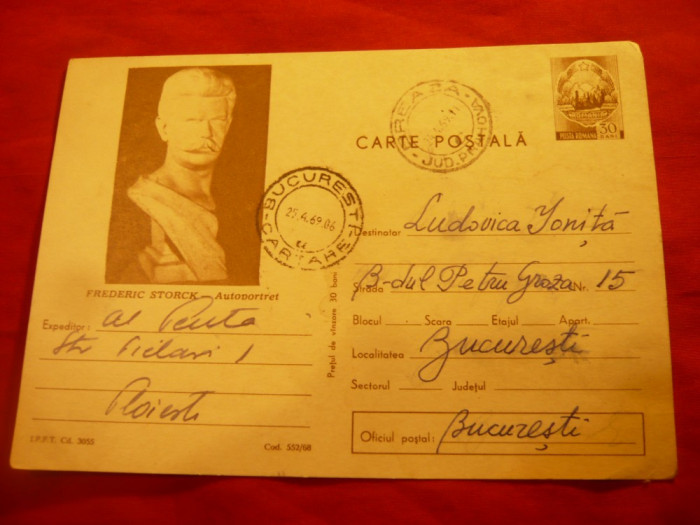 CARTE POȘTALĂ
POSTA ROMANA
30
BANI
BUCUREȘTI
25.4.69.06
CARTARE
JUD. PRAHOVA
FREDERIC STORCK - Autoportret
Expeditor: Al
Str 1
Ploiesti
I.P.F.T. Cd. 3053
Cod. 552/68
Prețul de vînzare 30 bani
Destinator Ludovica Ioniță
Strada B-dul Petru Groza Nr. 15
Blocul Scara Etajul Apart.
Localitatea București
Sectorul Județul
Oficiul poștal: București